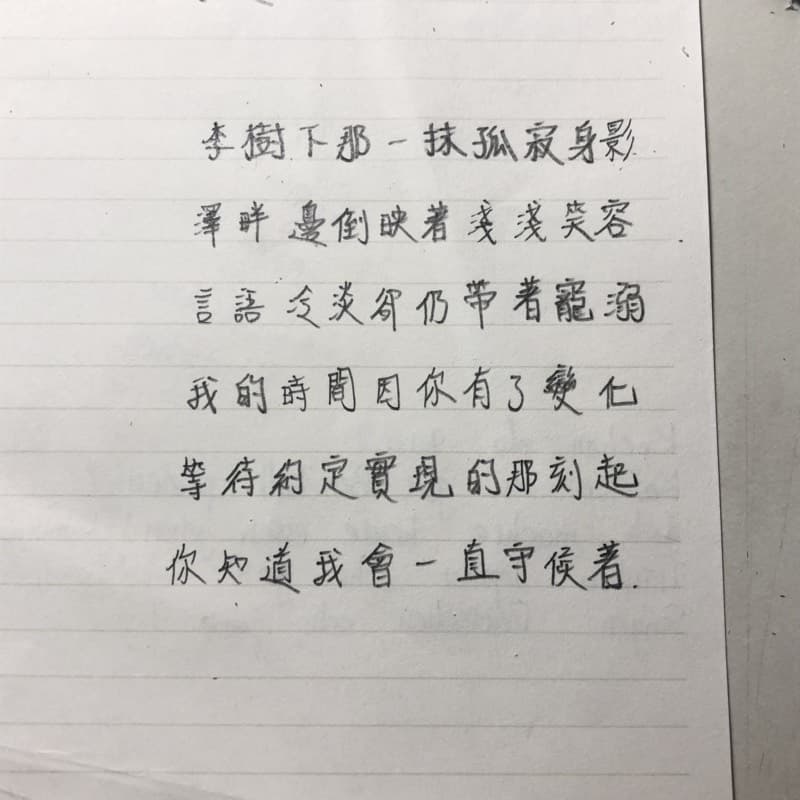 李樹下那一抹孤寂身影
澤畔邊倒映著淺淺笑容
言語冷淡卻仍帶著寵溺
我的時間因你有了變化
等待約定實現的那刻起
你知道我會一直守候著.